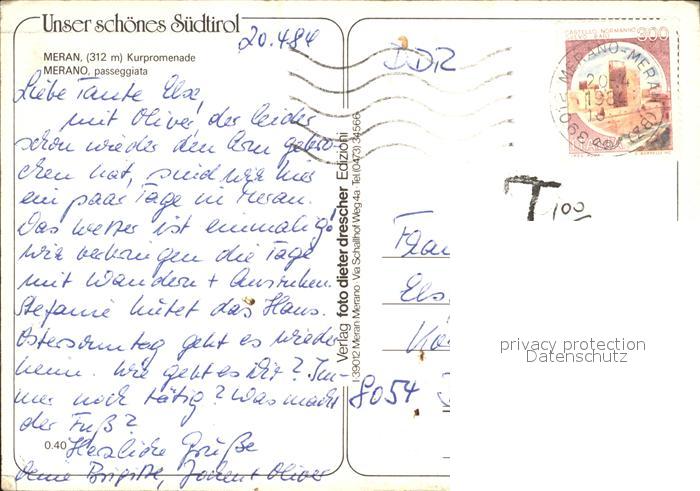 Unser schönes Südtirol
20.4.84
MERAN, (312 m) Kurpromenade
MERANO, passeggiata
Liebe Tante Else,
mit Oliver, der leider
schon wieder den Arm gebro-
chen hat, sind wir hier
ein paar Tage in Meran.
Das Wetter ist einmalig!
Wir verbringen die Tage
mit Wandern + Ausruhen.
Stefanie hütet das Haus.
Ostersonntag geht es wieder
heim. Wie geht es Dir? Im-
mer noch tätig? Was macht
der Fuß?
Herzliche Grüße
Deine Brigitte, Jochen + Oliver
0.40
Verlag foto dieter drescher Edizioni
I-39012 Meran Merano · Via Schaffhof Weg 4a · Tel (0473) 34566
DDR
CASTELLO NORMANNO
300
39012 MERANO-MERAN (BZ)
20.4.
1984
T 100
Frau
Els
8054
privacy protection
Datenschutz